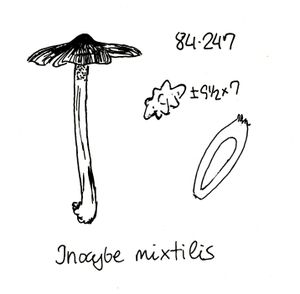 84-247
±9½×7
Inocybe mixtilis